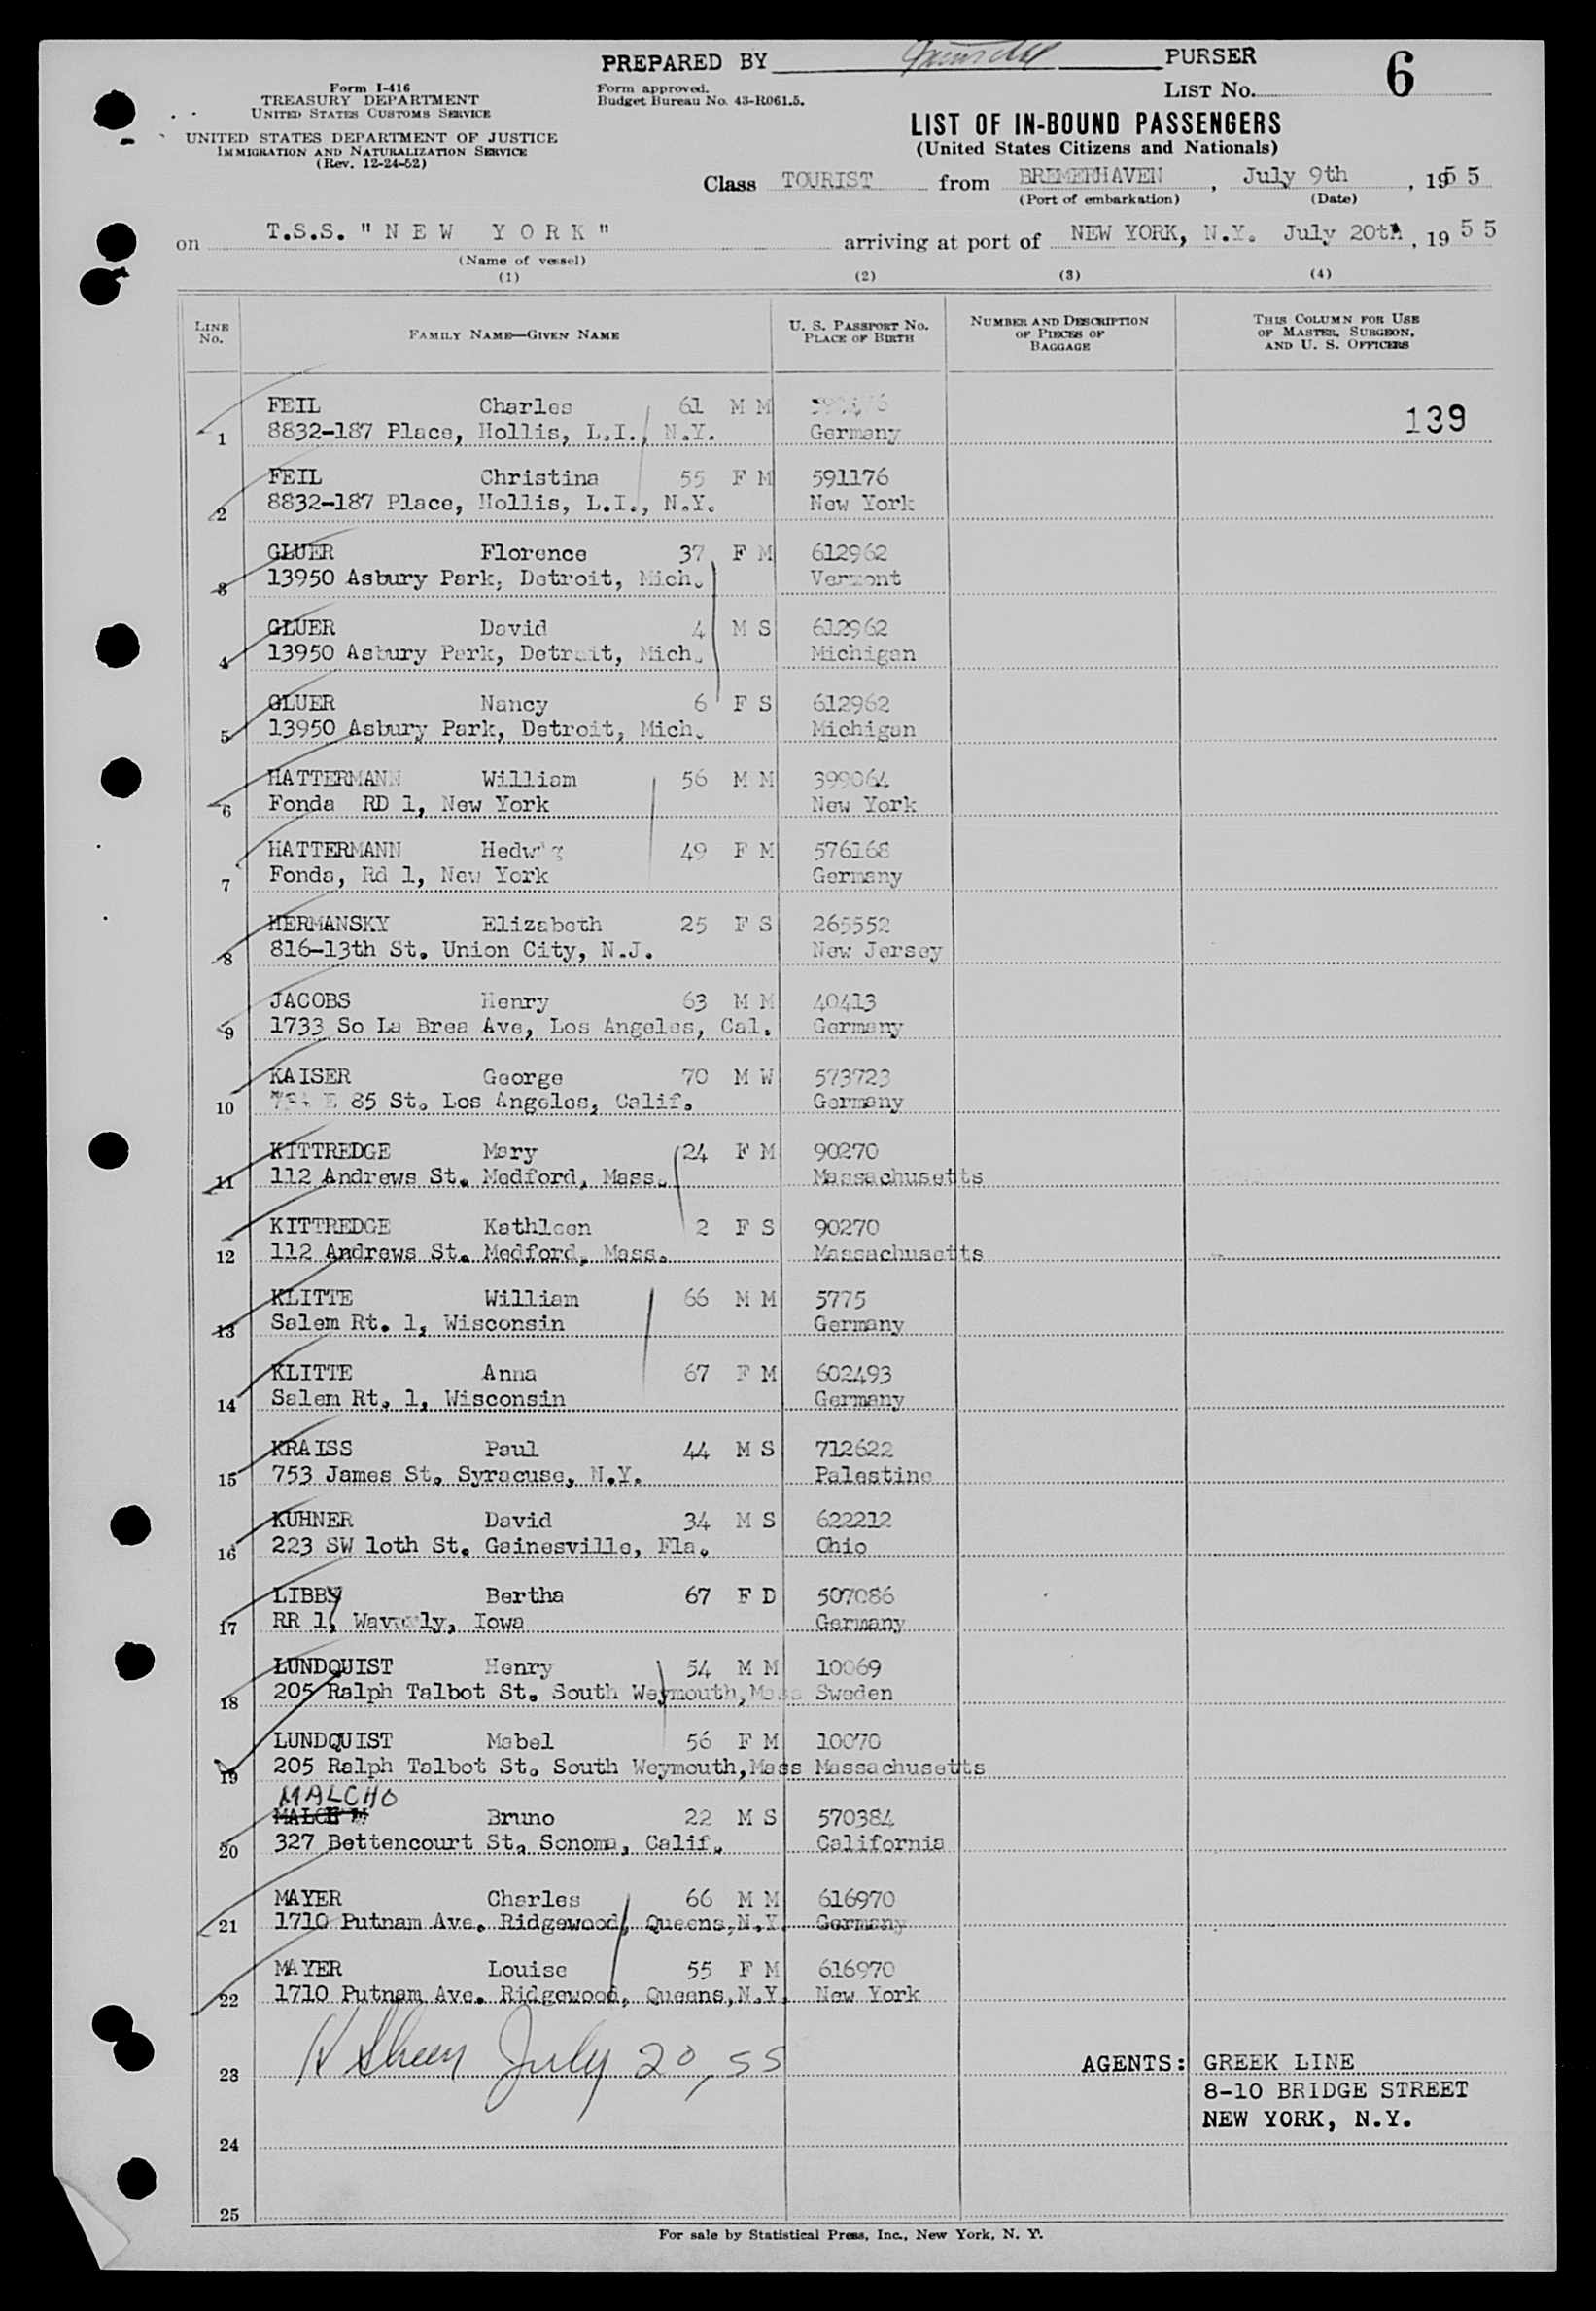 PREPARED BY PURSER
6
Form I-416
TREASURY DEPARTMENT
UNITED STATES CUSTOMS SERVICE
UNITED STATES DEPARTMENT OF JUSTICE
IMMIGRATION AND NATURALIZATION SERVICE
(Rev. 12-24-52)
Form approved.
Budget Bureau No. 43-R061.5.
LIST No.
LIST OF IN-BOUND PASSENGERS
(United States Citizens and Nationals)
Class TOURIST from BREMERHAVEN, July 9th, 1955
(Port of embarkation) (Date)
on T.S.S. "NEW YORK" arriving at port of NEW YORK, N.Y. July 20th, 1955
(Name of vessel)
(1) (2) (3) (4)
LINE No. FAMILY NAME—GIVEN NAME U. S. PASSPORT No. PLACE OF BIRTH NUMBER AND DESCRIPTION OF PIECES OF BAGGAGE THIS COLUMN FOR USE OF MASTER, SURGEON, AND U. S. OFFICERS
FEIL Charles 61 M M
1 8832-187 Place, Hollis, L.I., N.Y. Germany 139
FEIL Christina 55 F M 591176
2 8832-187 Place, Hollis, L.I., N.Y. New York
GLUER Florence 37 F M 612962
3 13950 Asbury Park, Detroit, Mich. Vermont
GLUER David 4 M S 612962
4 13950 Asbury Park, Detroit, Mich. Michigan
GLUER Nancy 6 F S 612962
5 13950 Asbury Park, Detroit, Mich. Michigan
HATTERMANN William 56 M M 399064
6 Fonda RD 1, New York New York
HATTERMANN Hedwig 49 F M 576168
7 Fonda, Rd 1, New York Germany
HERMANSKY Elizabeth 25 F S 265552
8 816-13th St. Union City, N.J. New Jersey
JACOBS Henry 63 M M 40413
9 1733 So La Brea Ave, Los Angeles, Cal. Germany
KAISER George 70 M W 573723
10 E 85 St. Los Angeles, Calif. Germany
KITTREDGE Mary 24 F M 90270
11 112 Andrews St. Medford, Mass. Massachusetts
KITTREDGE Kathleen 2 F S 90270
12 112 Andrews St. Medford, Mass. Massachusetts
KLITTE William 66 M M 5775
13 Salem Rt. 1, Wisconsin Germany
KLITTE Anna 67 F M 602493
14 Salem Rt. 1, Wisconsin Germany
KRAISS Paul 44 M S 712622
15 753 James St. Syracuse, N.Y. Palestine
KUHNER David 34 M S 622212
16 223 SW loth St. Gainesville, Fla. Ohio
LIBBY Bertha 67 F D 507086
17 RR 1, Waverly, Iowa Germany
LUNDQUIST Henry 54 M M 10069
18 205 Ralph Talbot St. South Weymouth, Mass Sweden
LUNDQUIST Mabel 56 F M 10070
19 205 Ralph Talbot St. South Weymouth, Mass Massachusetts
MALCHO
Bruno 22 M S 570384
20 327 Bettencourt St. Sonoma, Calif. California
MAYER Charles 66 M M 616970
21 1710 Putnam Ave. Ridgewood, Queens, N.Y. Germany
MAYER Louise 55 F M 616970
22 1710 Putnam Ave. Ridgewood, Queens, N.Y. New York
July 20, 55
23 AGENTS: GREEK LINE
8-10 BRIDGE STREET
NEW YORK, N.Y.
24
25
For sale by Statistical Press, Inc., New York, N. Y.